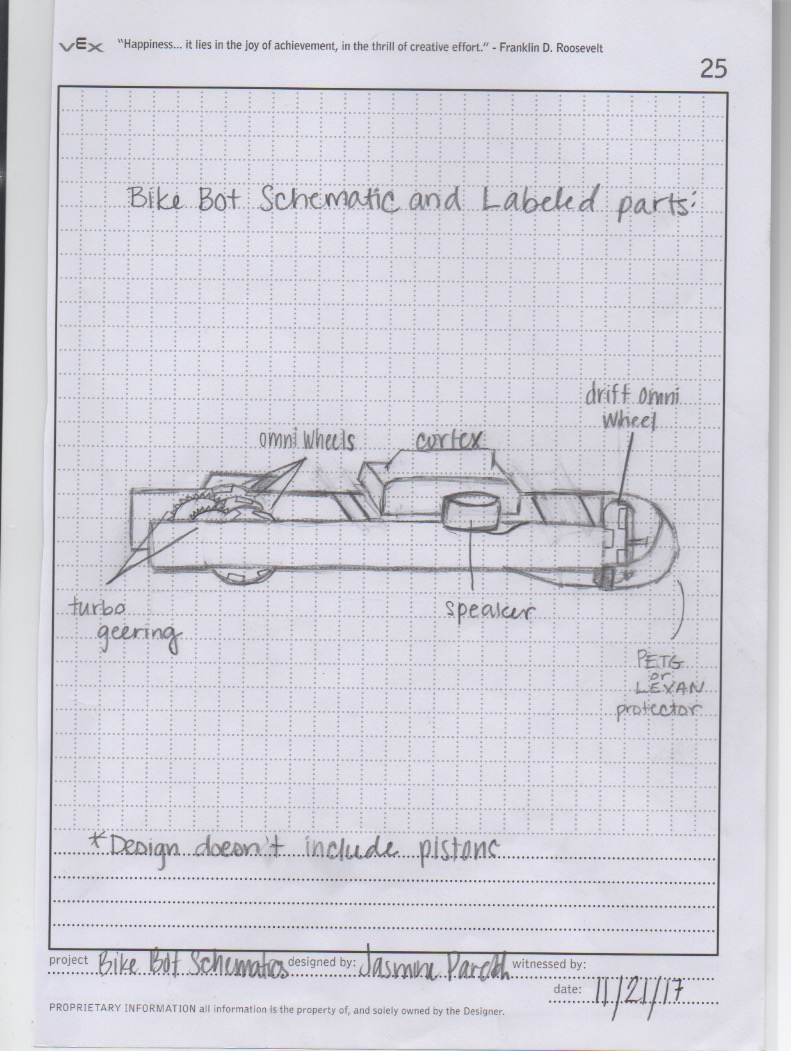 VEX "Happiness... it lies in the joy of achievement, in the thrill of creative effort." - Franklin D. Roosevelt
25
Bike Bot Schematic and Labeled parts:
drift omni
wheel
omni wheels
cortex
turbo
geering
speaker
PETG
or
LEXAN
protector
*Design doesn't include pistons
project Bike Bot Schematics designed by: Jasmine witnessed by:
date: 11/21/17
PROPRIETARY INFORMATION all information is the property of, and solely owned by the Designer.